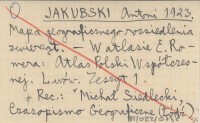 JAKUBSKI Antoni 1923.
Mapa geograficznego rozsiedlenia
zwierząt. — W atlasie E. Ro-
mera: Atlas Polski Współczes-
nej. Lwów. Zeszyt 1.
+ Rec.: Michał Siedlecki,
Czasopismo Geograficzne